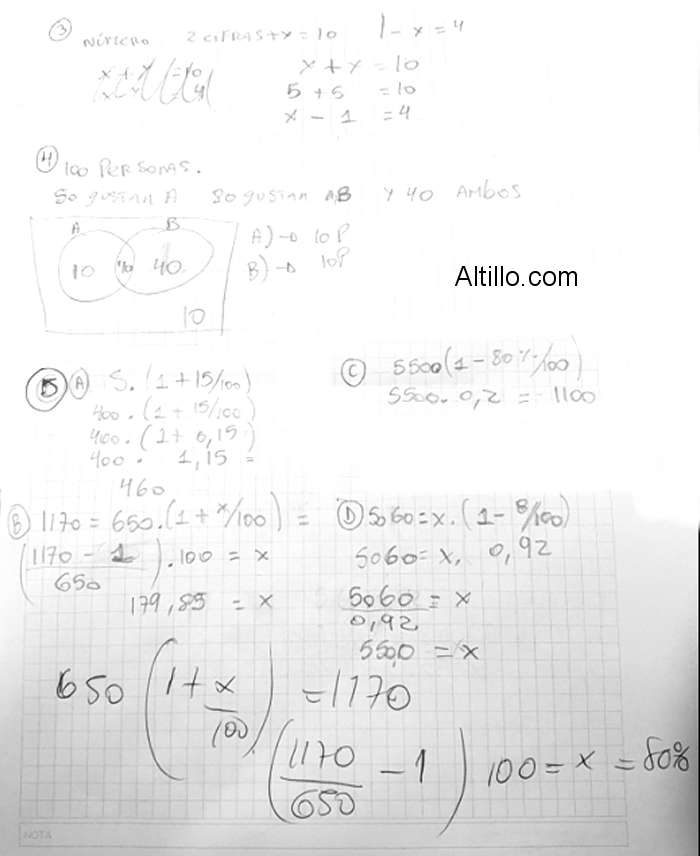 ③ NÚMERO 2 CIFRAS + x = 10 1 - x = 4
x + x = 10
5 + 5 = 10
x - 1 = 4
④ 100 PERSONAS.
50 gustan A 80 gustan B Y 40 AMBOS
A B
10 40 40
10
A) → 10 P
B) → 10P
Altillo.com
⑤ Ⓐ S. (1 + 15/100)
400. (1 + 15/100)
400. (1 + 0,15)
400 . 1,15 =
460
Ⓒ 5500(1 - 80%/100)
5500. 0,2 = 1100
Ⓑ 1170 = 650.(1 + x/100) =
(1170 - 1 / 650) .100 = x
179,85 = x
Ⓓ 5060 = x. (1 - 8/100)
5060 = x. 0,92
5060/0,92 = x
5500 = x
650 (1 + x/100) = 1170
(1170/650 - 1) 100 = x = 80%
NOTA